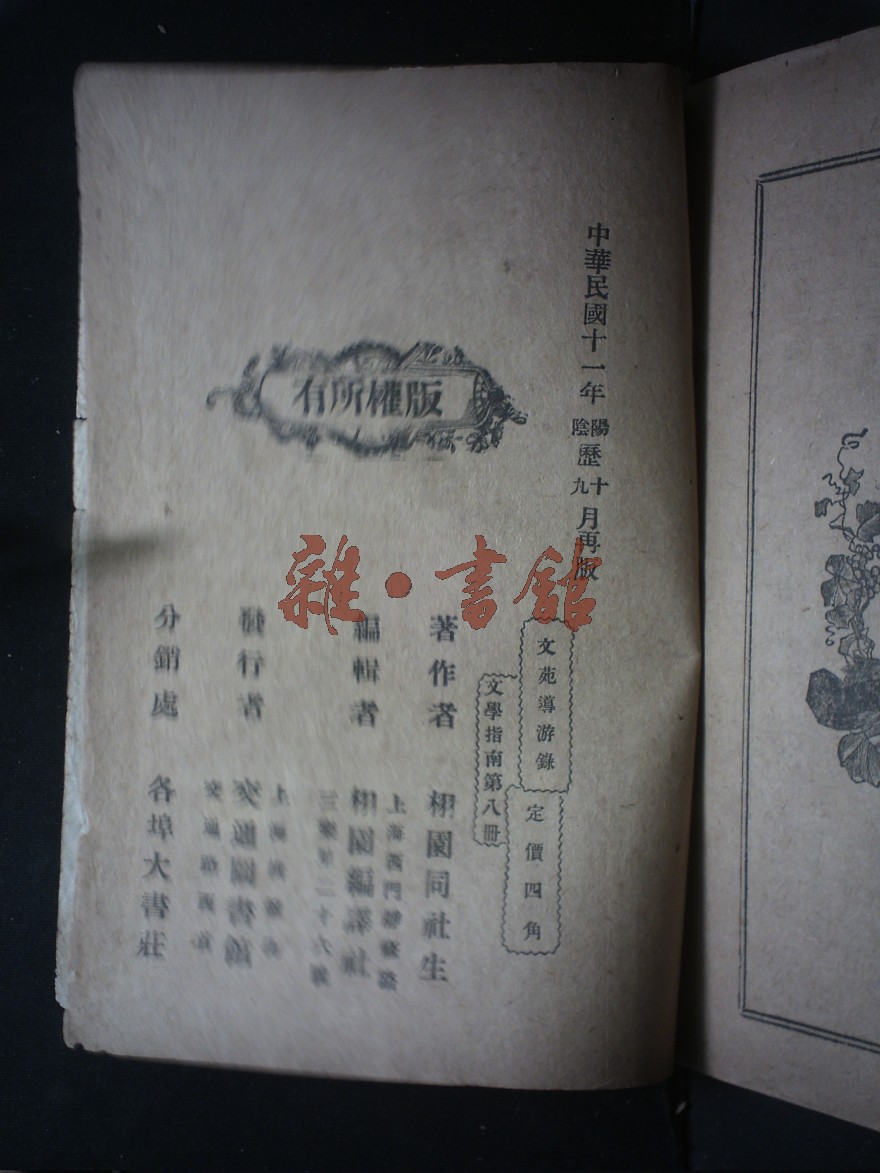 中華民國十一年陽陰歷十九月再版
版權所有
文苑導游錄
定價四角
文學指南第八冊
著作者 栩園同社生
上海西門靜修路
編輯者 栩園編譯社
三樂里二十六號
上海
發行者 交通圖書館
交通路西首
分銷處 各埠大書莊
雜·書館